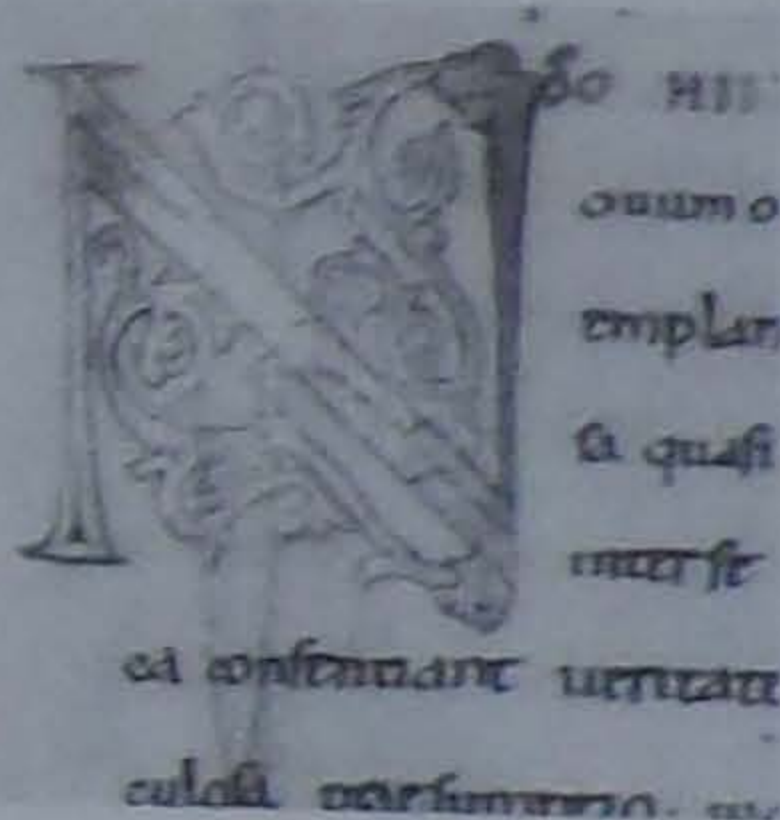 so HI
Nouum o
emplari
sa quasi
inter se
ea consentiant ueritate
culosa praesumptio.